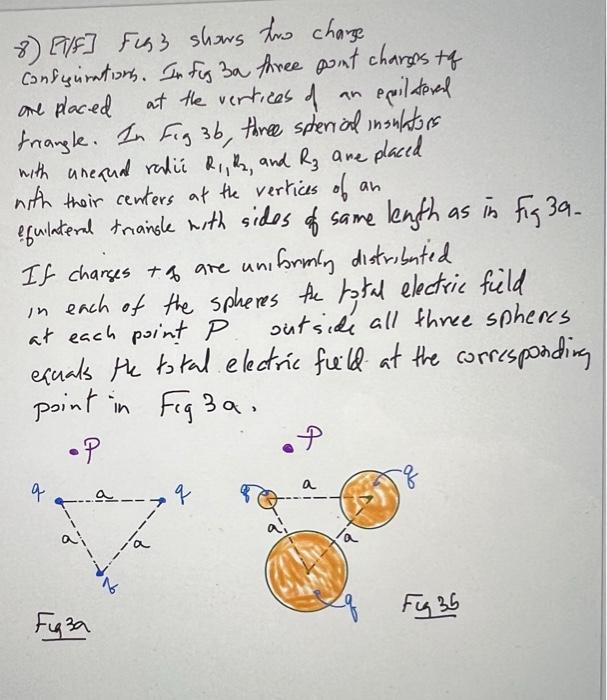 8) [T/F] Fig 3 shows two charge
configurations. In fig 3a three point charges +q
are placed at the vertices of an equilateral
triangle. In Fig 3b, three spherical insulators
with unequal radii R1, R2, and R3 are placed
with their centers at the vertices of an
equilateral triangle with sides of same length as in fig 3a.
If charges +q are uniformly distributed
in each of the spheres the total electric field
at each point P outside all three spheres
equals the total electric field at the corresponding
point in Fig 3a.
P
P
q a q
q a q
a a
a a
q
q
Fig 3a
Fig 3b